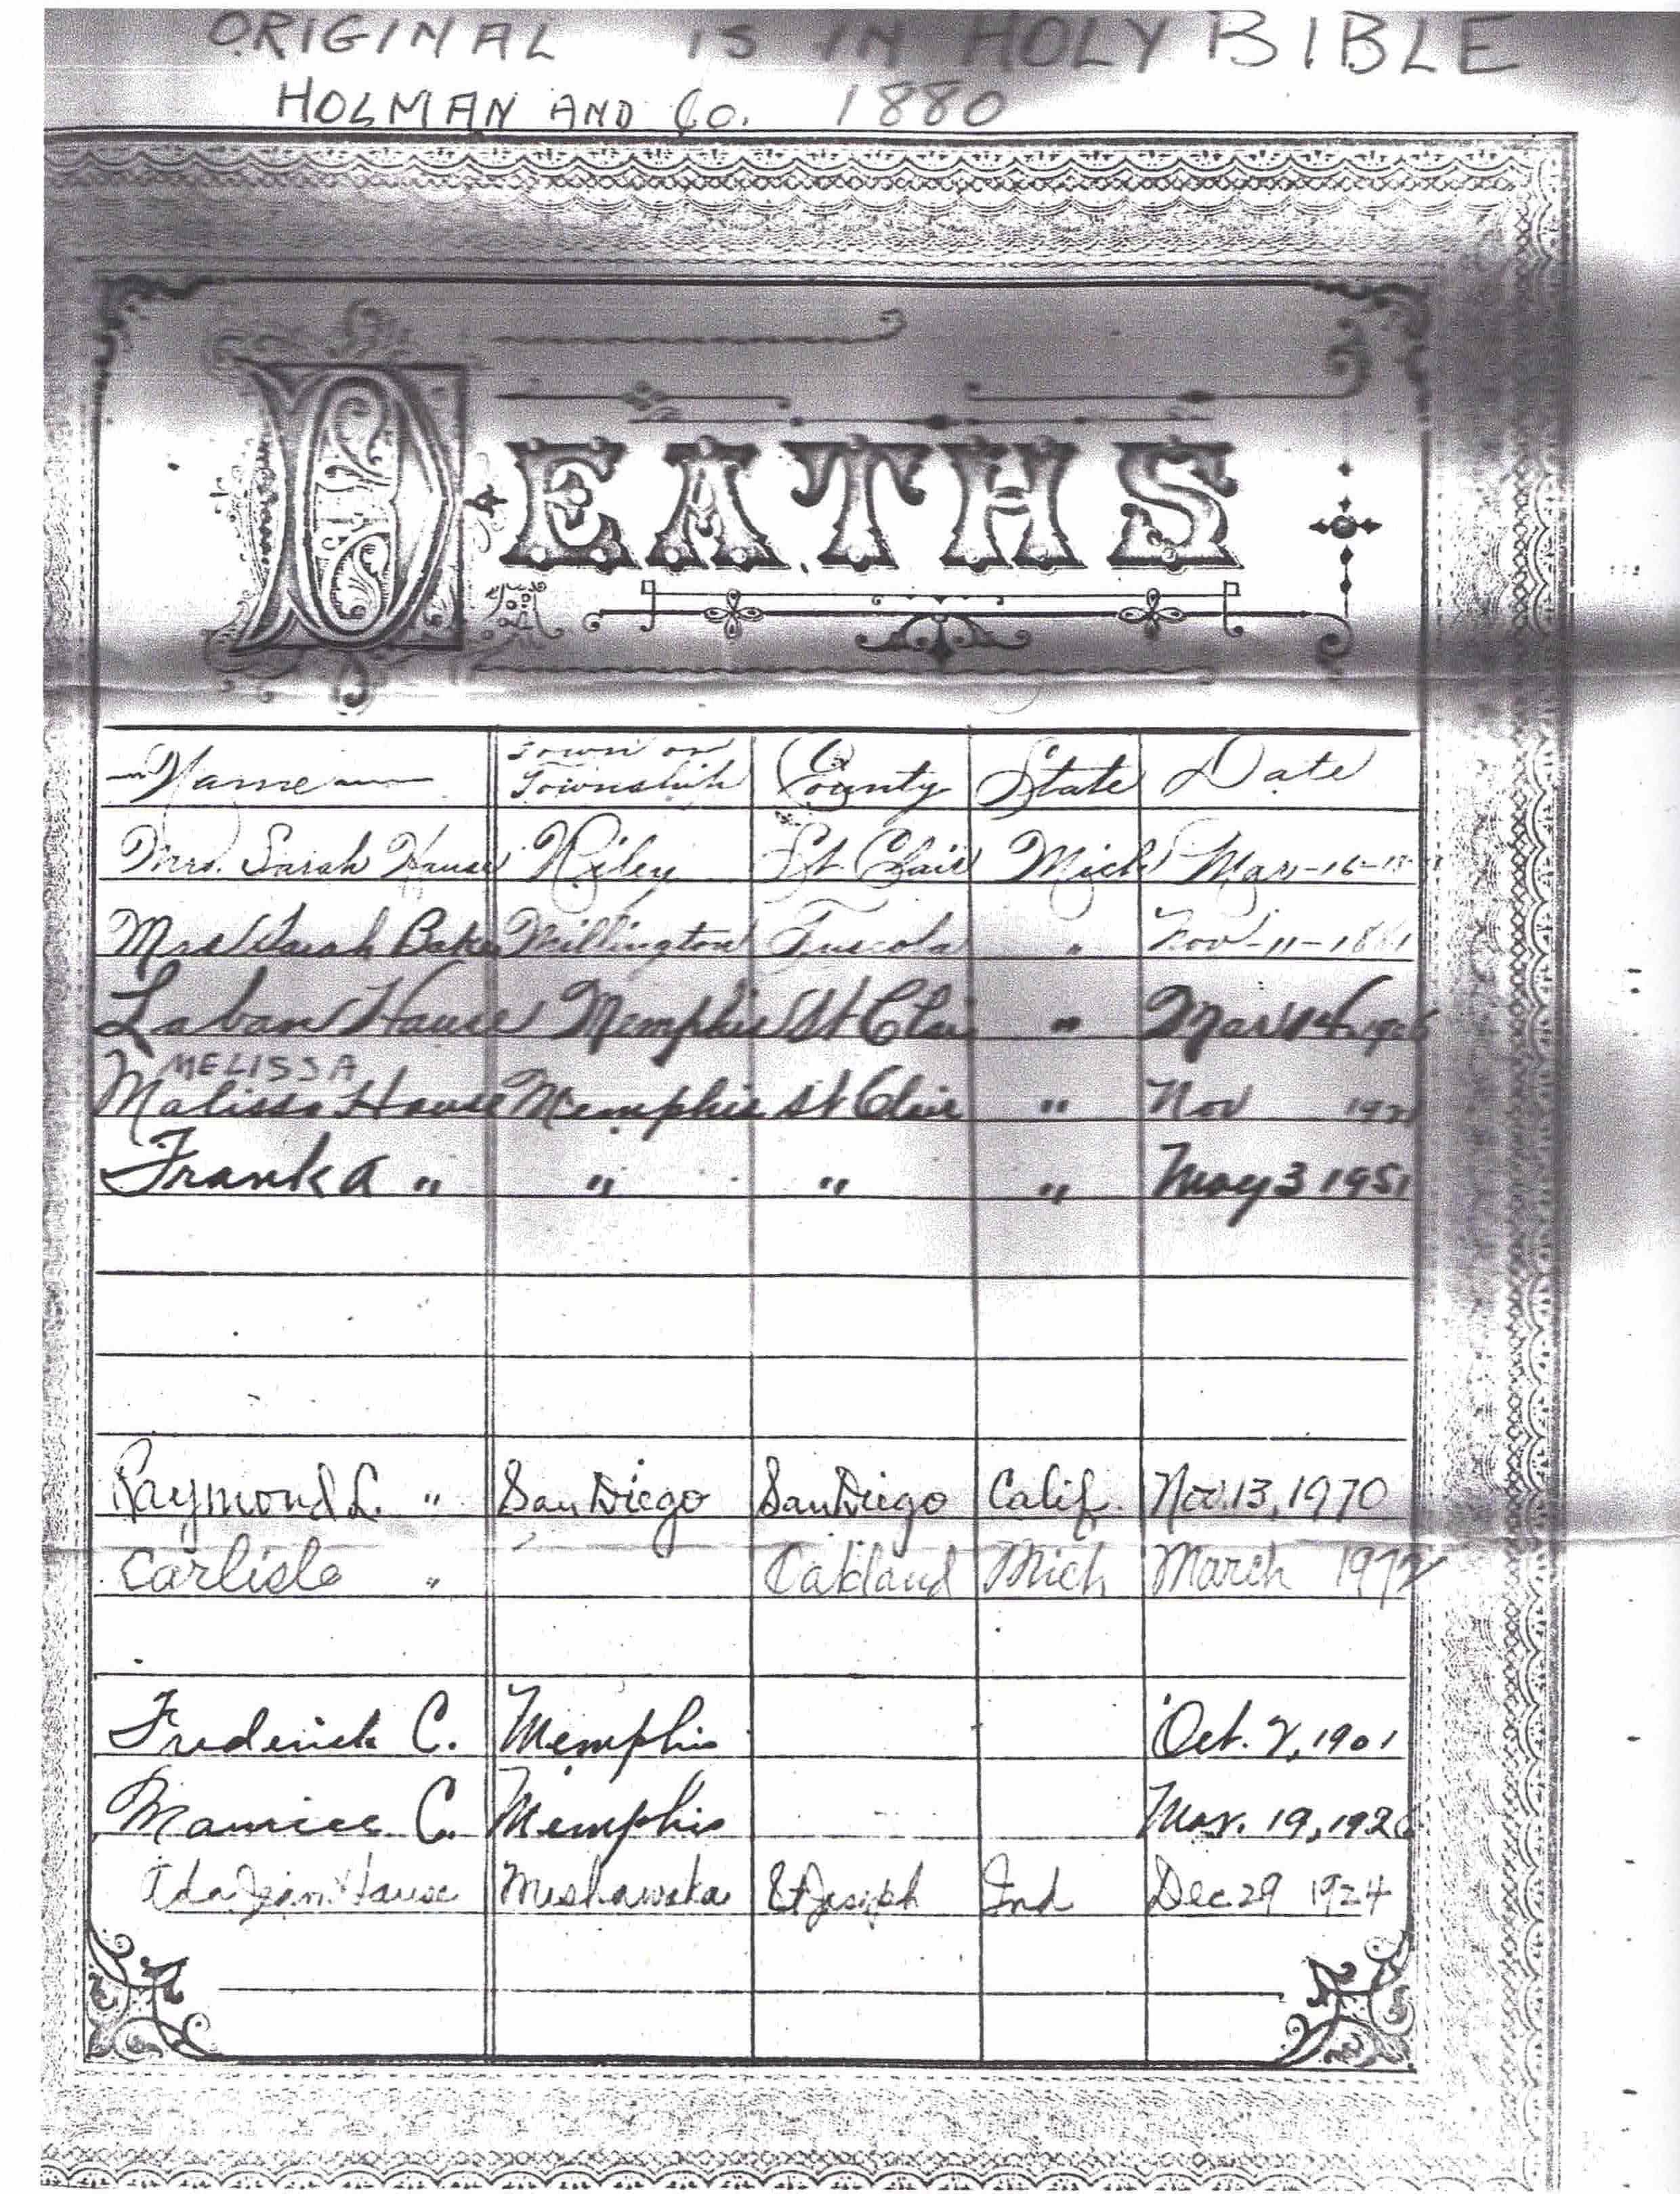 ORIGINAL IS IN HOLY BIBLE
HOLMAN AND Co. 1880
DEATHS
Name Town or Township County State Date
Mrs. Sarah Hause Riley St Clair Mich Mar-16-
Mrs Sarah Baker Millington Tuscola " Nov-11-1881
Laban Hause Memphis St Clair " Mar 14 1906
MELISSA
Malissa Hause Memphis St Clair " Nov
Frank A " " " " May 3 1951
Raymond L. " San Diego San Diego Calif. Nov. 13, 1970
Carlisle " Oakland Mich March 1972
Frederick C. Memphis Oct. 2, 1901
Maurice C. Memphis Mar. 19, 1926
Ada Jean Hause Mishawaka St Joseph Ind Dec 29 1924